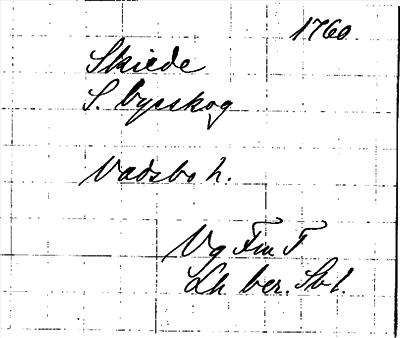 1760
Skiede
S. Lyrskog
Vadsbo h.
Vg Fm T
Lh ber. Sbl.